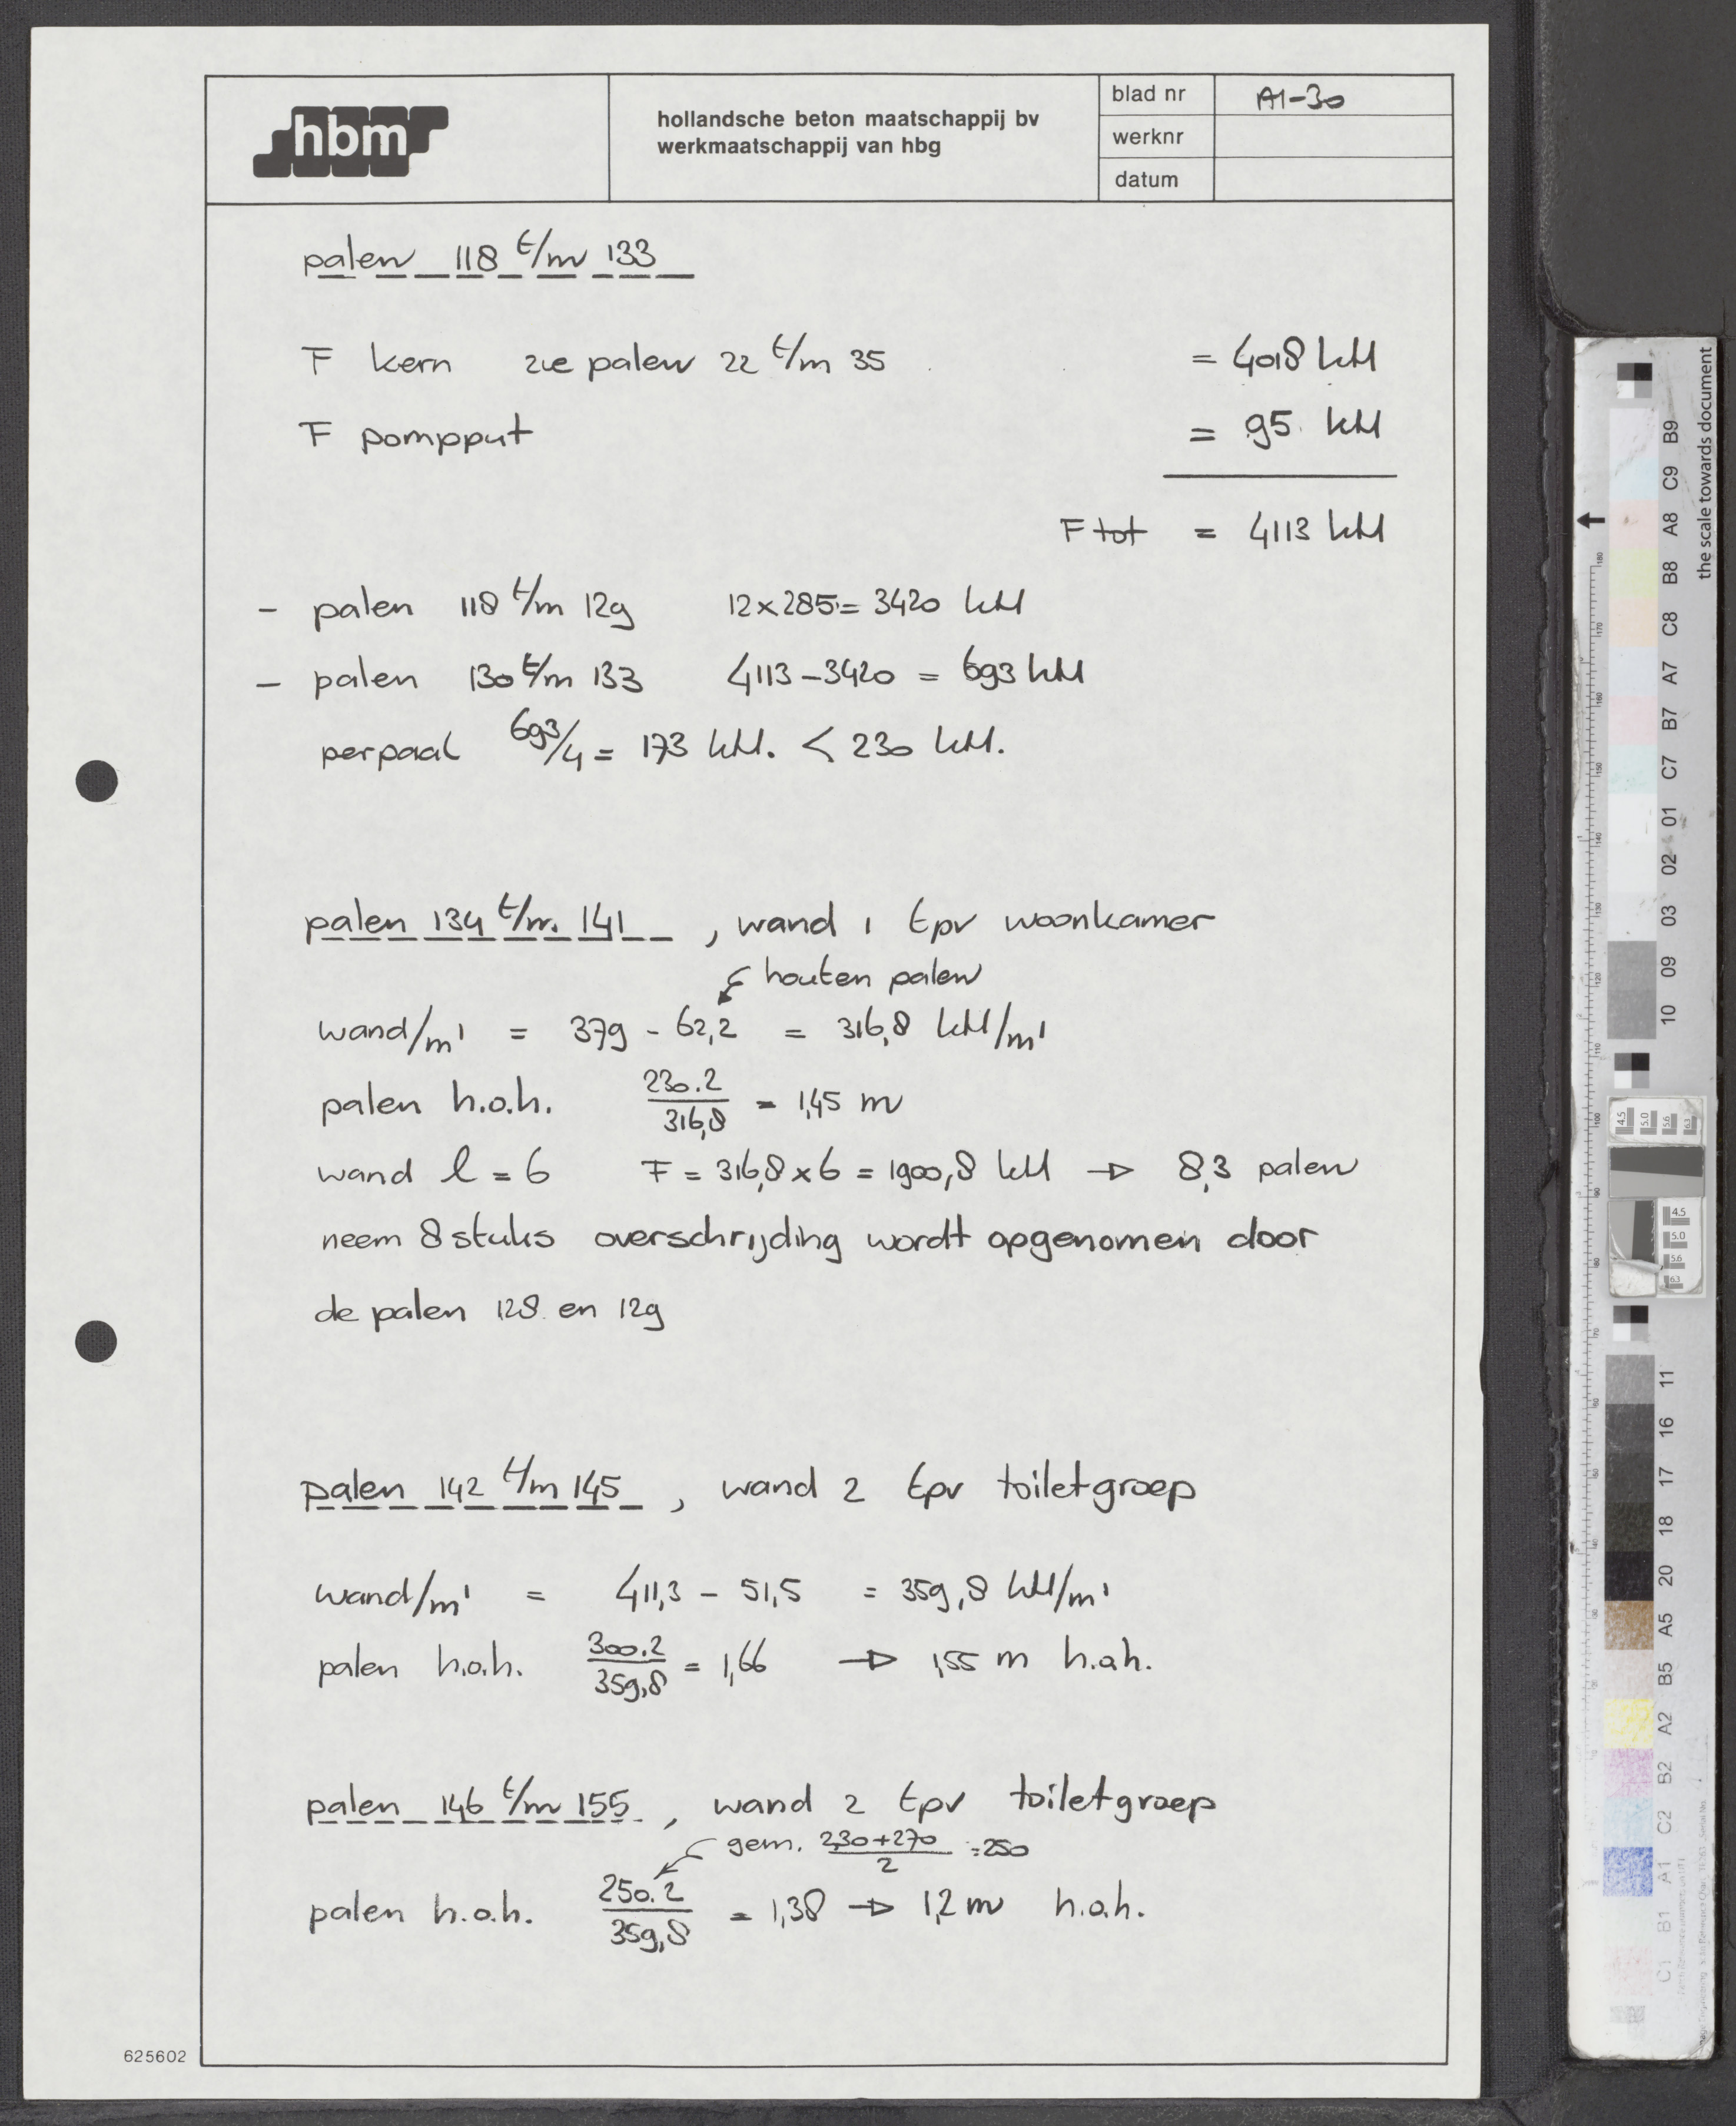 hbm
hollandsche beton maatschappij bv
werkmaatschappij van hbg
blad nr A1-30
werknr
datum
palen 118 t/m 133
F kern zie palen 22 t/m 35 = 4018 kN
F pompput = 95 kN
F tot = 4113 kN
- palen 118 t/m 129 12x285 = 3420 kN
- palen 130 t/m 133 4113-3420 = 693 kN
per paal 693/4 = 173 kN. < 230 kN.
palen 134 t/m 141, wand 1 tpv woonkamer
houten palen
wand/m' = 379 - 62,2 = 316,8 kN/m'
palen h.o.h. 230.2/316,8 = 1,45 m
wand l = 6 F = 316,8 x 6 = 1900,8 kN → 8,3 palen
neem 8 stuks overschrijding wordt opgenomen door
de palen 128 en 129
palen 142 t/m 145, wand 2 tpv toiletgroep
wand/m' = 411,3 - 51,5 = 359,8 kN/m'
palen h.o.h. 300.2/359,8 = 1,66 → 1,55 m h.o.h.
palen 146 t/m 155, wand 2 tpv toiletgroep
gem. 230+270/2 = 250
palen h.o.h. 250.2/359,8 = 1,38 → 1,2 m h.o.h.
625602
the scale towards document
B9
C9
A8
B8
C8
A7
B7
C7
01
02
03
09
10
11
16
17
18
20
A5
B5
A2
B2
C2
A1
B1
C1